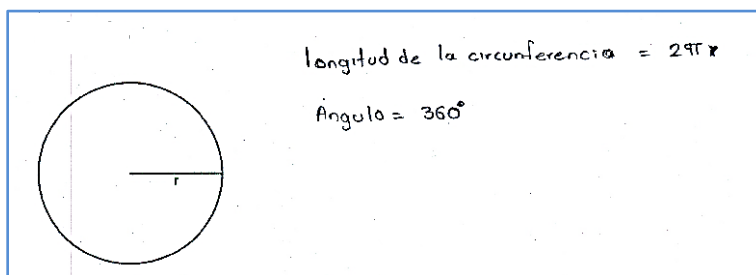 longitud de la circunferencia = 2πr
Angulo = 360°
r